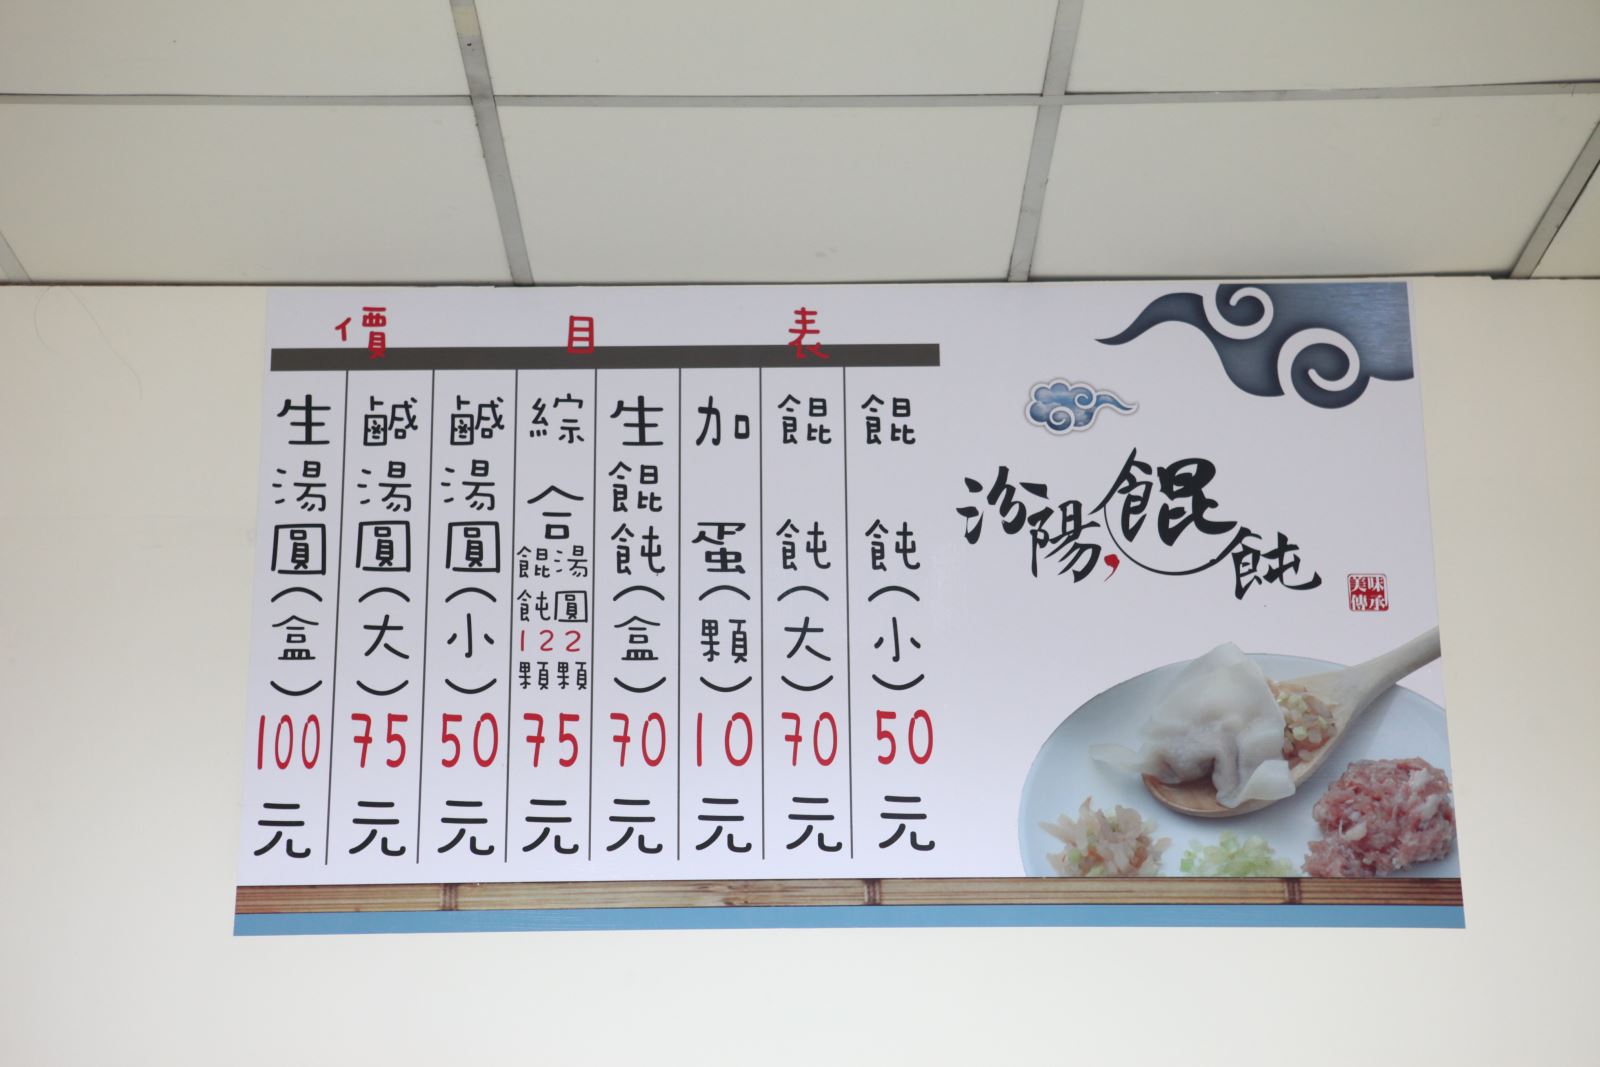 價目表
餛飩(小)50元
餛飩(大)70元
加蛋(顆)10元
生餛飩(盒)70元
綜合
湯圓2顆
餛飩12顆
75元
鹹湯圓(小)50元
鹹湯圓(大)75元
生湯圓(盒)100元
汾陽餛飩
美味傳承